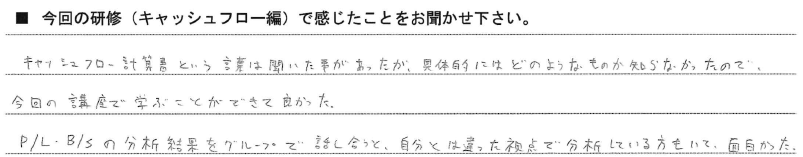 ■ 今回の研修（キャッシュフロー編）で感じたことをお聞かせ下さい。
キャッシュフロー計算書という言葉は聞いた事があったが、具体的にはどのようなものか知らなかったので、
今回の講座で学ぶことができて良かった。
P/L・B/Sの分析結果をグループで話し合うと、自分とは違った視点で分析している方もいて、面白かった。